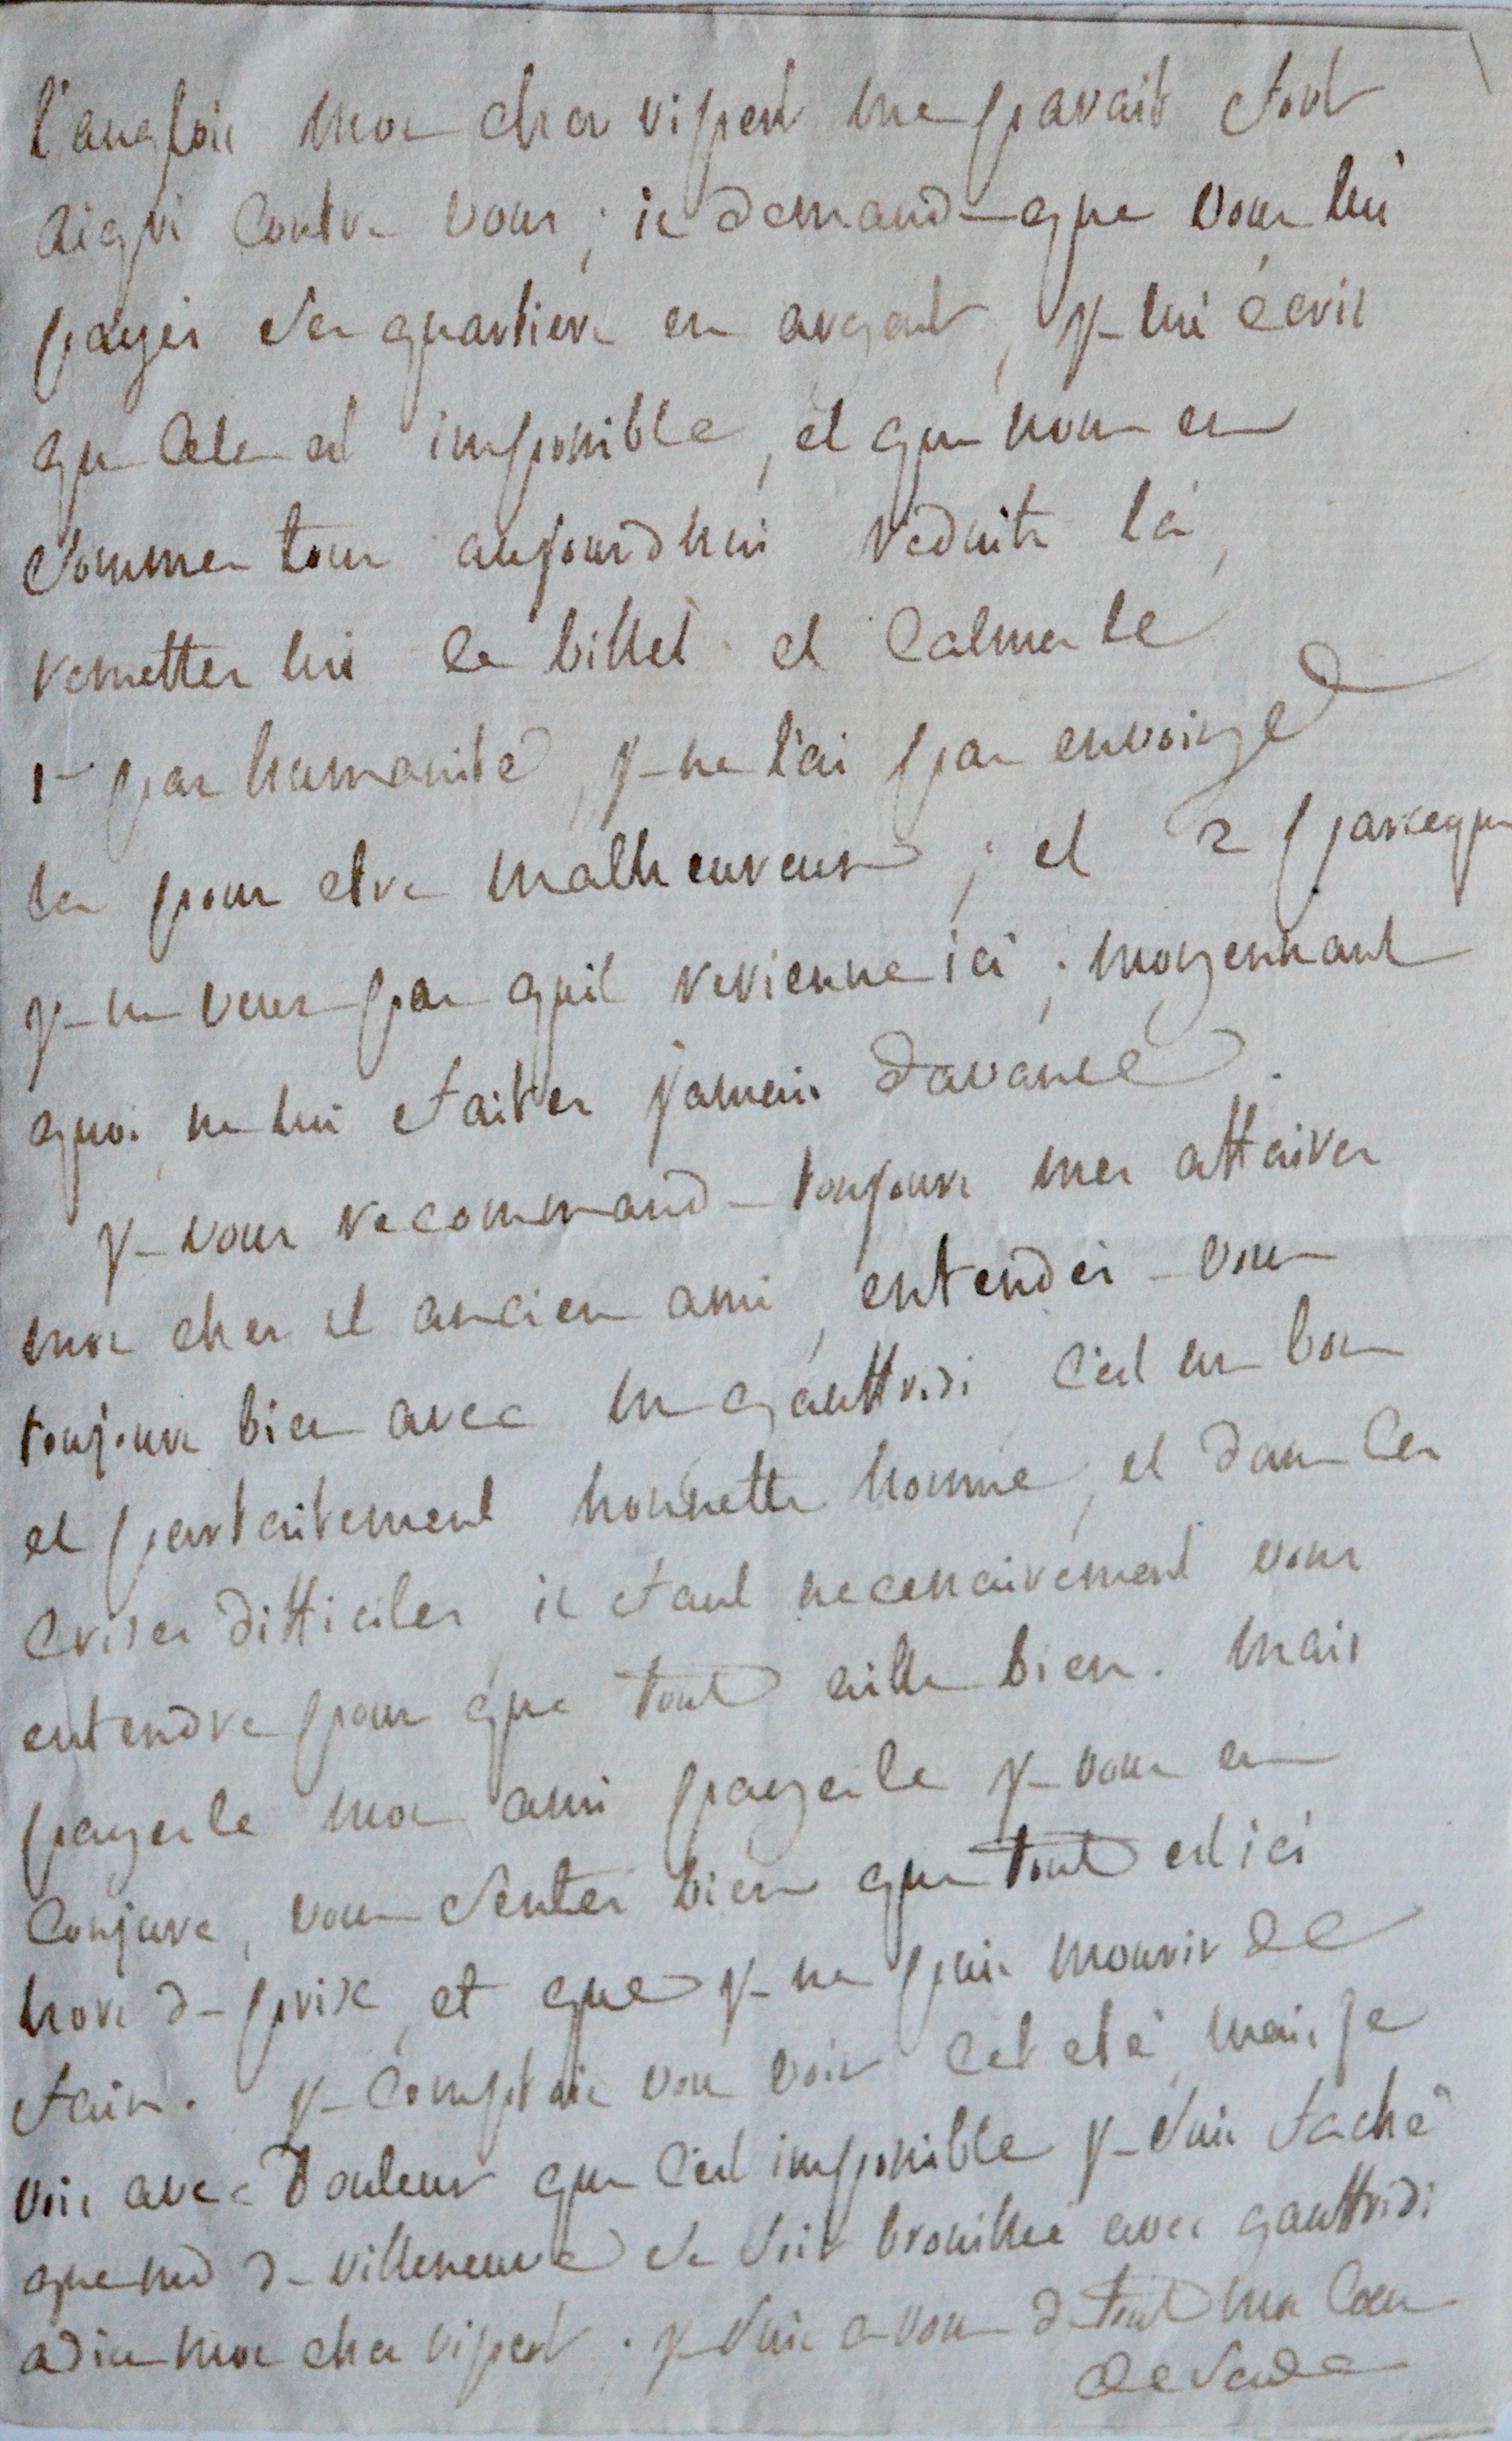 l'anglois mon cher ripert me parait fort
aigri contre vous; il demande que vous lui
payiés ses quartiers en argent, je lui écris
que cela est impossible, et que nous en
sommes tous aujourdhui réduits là,
remettes lui ce billet et calmes le
1° par humanité, je ne l'ai pas envoiyé
la pour etre malheureux; et 2 parceque
je ne veux pas quil revienne ici; moyennant
quoi ne lui faites jamais davance.
je vous recommande toujours mes affaires
mon cher et ancien ami, entendés-vous
toujours bien avec m gauffridi c'est un bon
et parfaitement honnette homme, et dans ces
crises difficiles il faut necessairement vous
entendre pour que tout aille bien. mais
payes le mon ami payes le je vous en
conjure, vous sentes bien que tout est ici
hors de prix, et que je ne puis mourir de
faim. je comptais vous voir cet eté, mais je
vois avec douleur que c'est impossible je suis faché
que md de villeneuve se soit brouillée avec gauffridi
adieu mon cher ripert. je suis a vous de tout mon coeur
de Sade